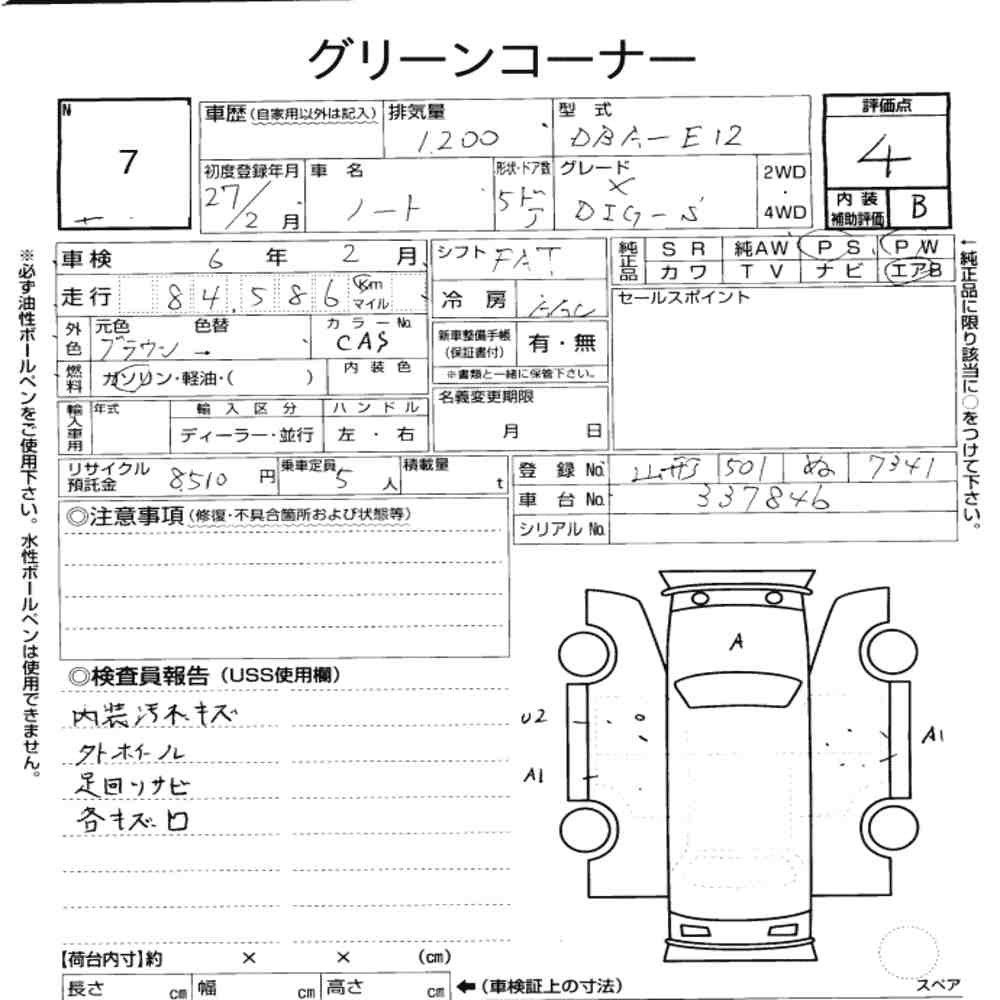 グリーンコーナー
N
7
車歴(自家用以外は記入)
排気量
1200
型 式
DBA-E12
評価点
4
初度登録年月
27/2月
車 名
ノート
形状・ドア数
5ドア
グレード
X
DIG-S
2WD
・
4WD
内 装
補助評価
B
車検 6 年 2 月
シフト FAT
純正品
S R
純AW
P S
P W
カ ワ
T V
ナ ビ
エアB
走行 84,586 Km マイル
冷 房
セールスポイント
外色
元色 色替
ブラウン →
カ ラ ー No.
CAS
新車整備手帳
(保証書付)
有・無
※書類と一緒に保管下さい。
燃料
ガソリン・軽油・( )
内 装 色
名義変更期限
月 日
輸入車用
年式
輸 入 区 分
ハ ン ド ル
ディーラー・並行
左 ・ 右
リサイクル
預託金
8510 円
乗車定員
5 人
積載量
t
登 録 No. 山形 501 ぬ 7341
車 台 No. 337846
シリアル No.
◎注意事項(修復・不具合箇所および状態等)
◎検査員報告(USS使用欄)
内装汚れキズ
外ホイール
足回りサビ
各キズ凹
A
U2
A1
A1
【荷台内寸】約 × × (cm)
長さ cm 幅 cm 高さ cm ←(車検証上の寸法)
スペア
※必ず油性ボールペンをご使用下さい。水性ボールペンは使用できません。
←純正品に限り該当に○をつけて下さい。